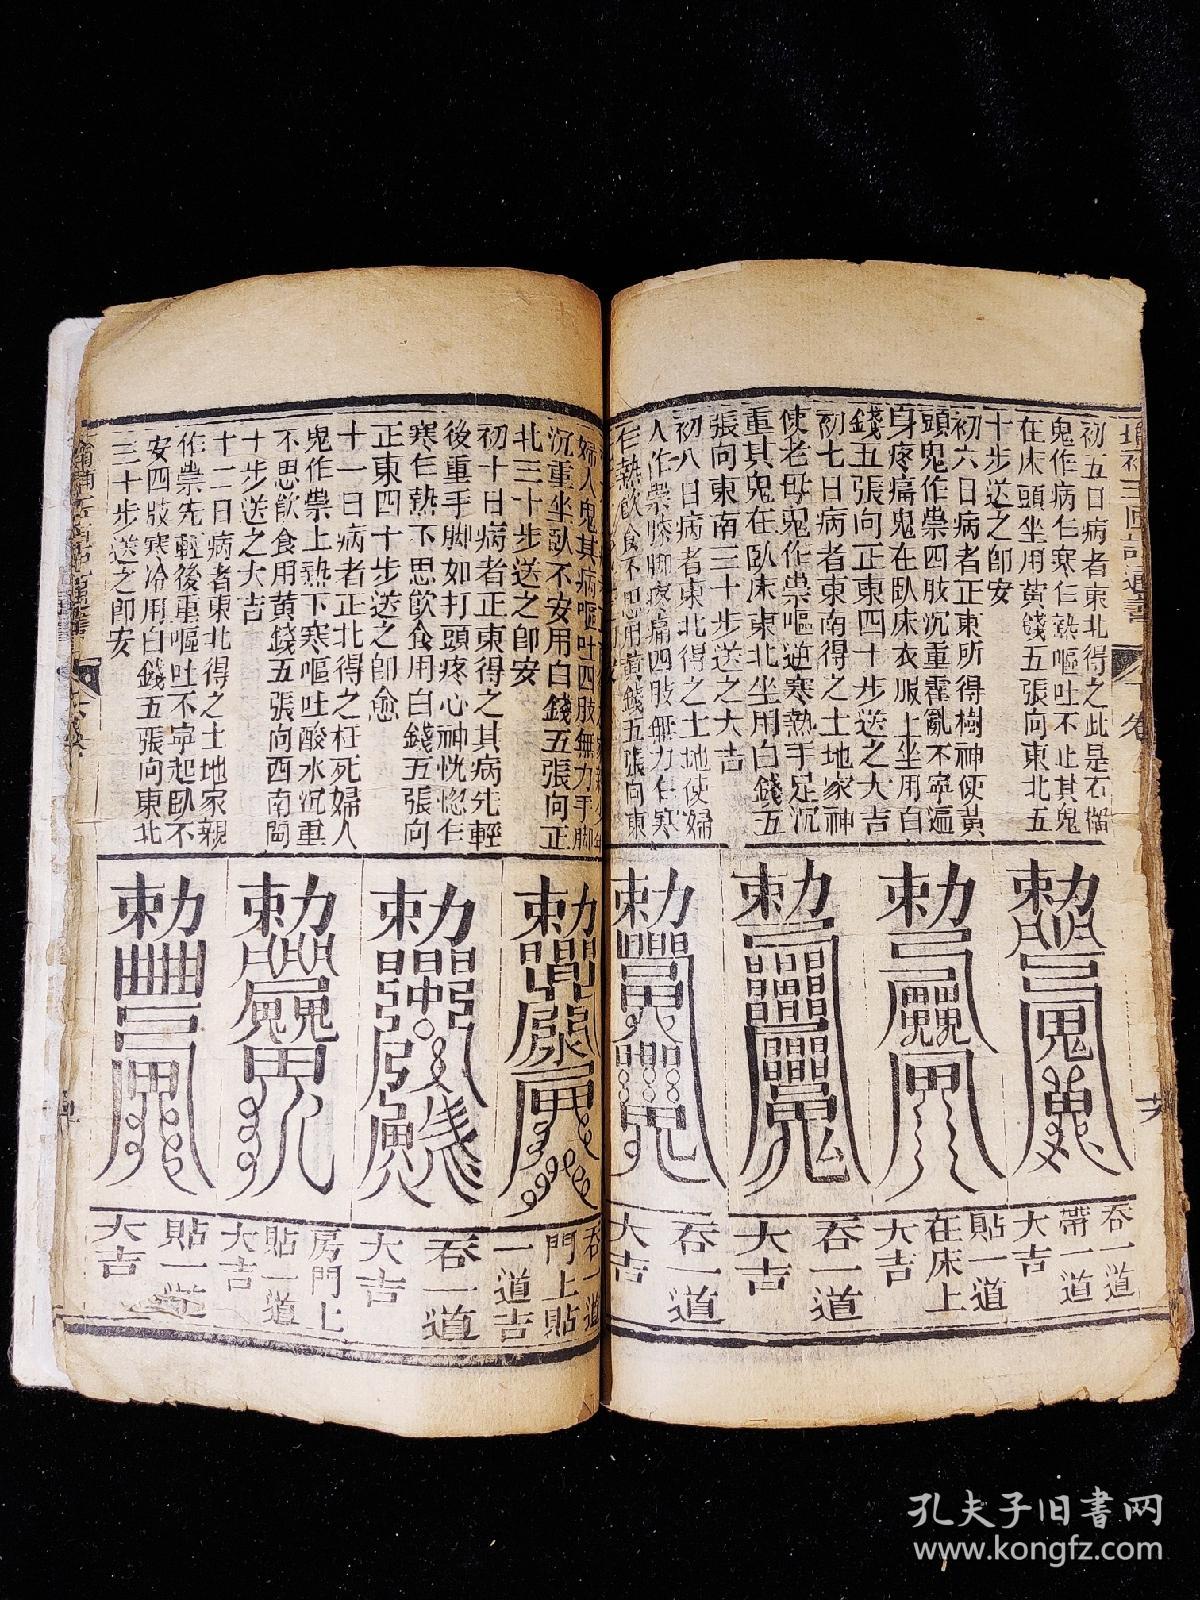 初五日病者東北得之此是石榴
鬼作病乍寒乍熱嘔吐不止其鬼
在床頭坐用黃錢五張向東北五
十步送之即安
初六日病者正東所得樹神使黃
頭鬼作祟四肢沉重霍亂不寧遍
身疼痛鬼在臥床衣服上坐用白
錢五張向正東四十步送之大吉
初七日病者東南得之土地家神
使老母鬼作祟嘔逆寒熱手足沉
重其鬼在臥床東北坐用白錢五
張向東南三十步送之大吉
初八日病者東北得之土地使婦
人作祟膝脚疼痛四肢無力乍寒
乍熱飲食不思用黃錢五張向東
婦人鬼其病嘔吐四肢無力手脚
沉重坐臥不安用白錢五張向正
北三十步送之即安
初十日病者正東得之其病先輕
後重手脚如打頭疼心神恍惚乍
寒乍熱不思飲食用白錢五張向
正東四十步送之即愈
十一日病者正北得之枉死婦人
鬼作祟上熱下寒嘔吐酸水沉重
不思飲食用黃錢五張向西南
十步送之大吉
十二日病者東北得之土地家親
作祟先輕後重嘔吐不寧起臥不
安四肢寒冷用白錢五張向東北
三十步送之即安
吞一道
帶一道
大吉
貼一道
在床上
大吉
吞一道
大吉
吞一道
大吉
吞一道
門上貼
一道吉
吞一道
大吉
房門上
貼一道
大吉
貼一道
大吉
孔夫子旧書网
www.kongfz.com